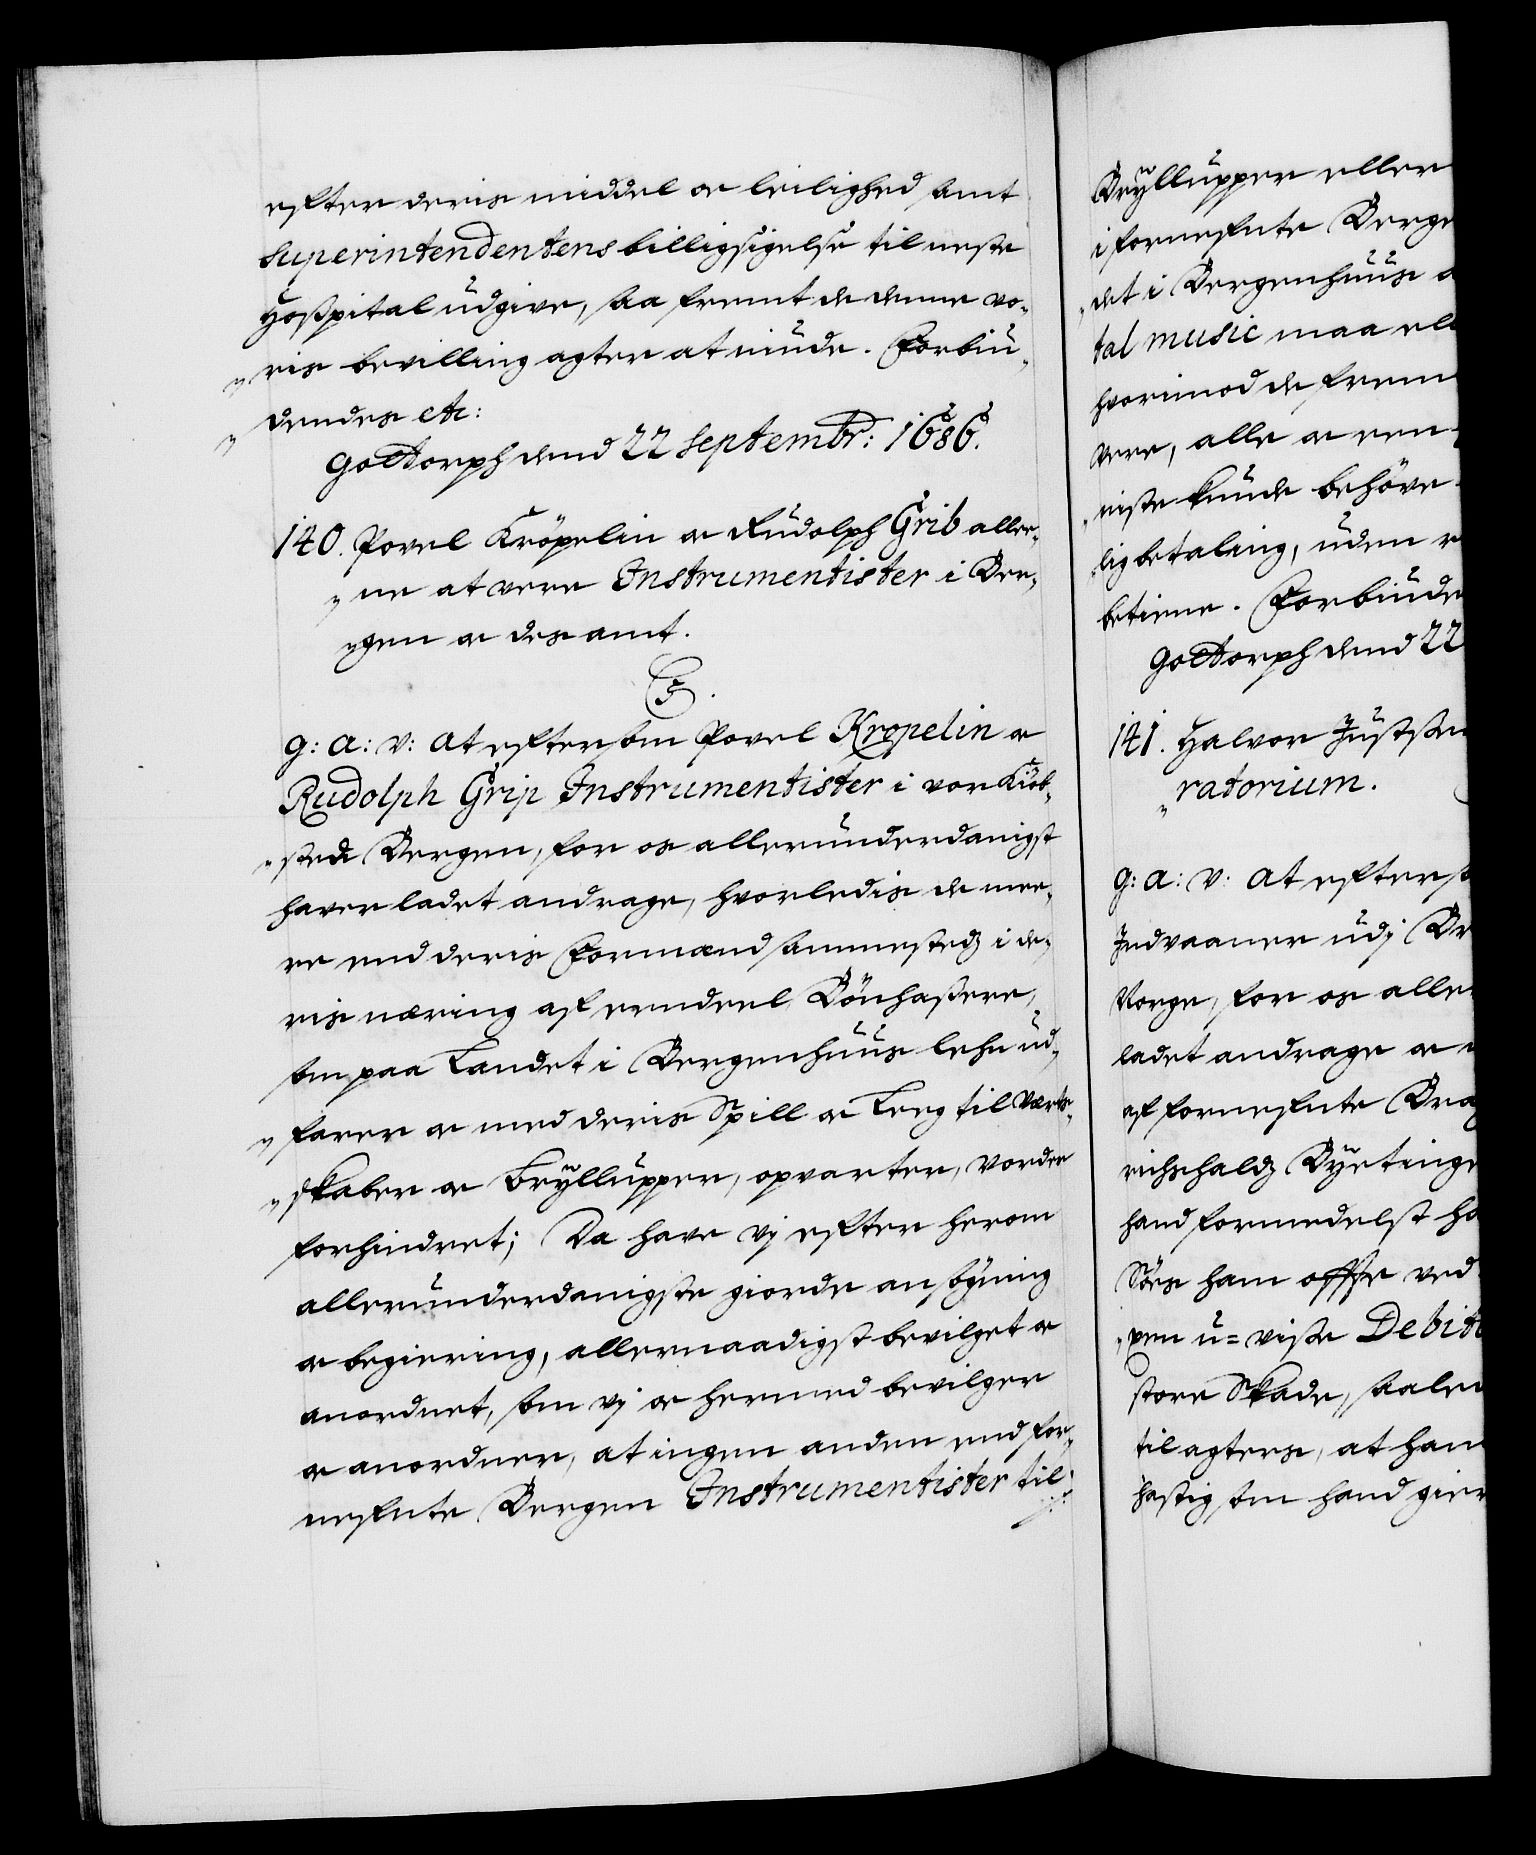 efter deris middel oc leilighed samt
superintendentens billigsigelse til neste
Hospital udgive, saa fremt de denne vo-
ris bevilling agter at niude. Forbiu-
dendes etc:
Gottorph dend 22 Septembr: 1686.
140. Povel Kröpelin oc Rudolph Grib alle-
ne at vere Instrumentister i Ber-
gen oc des amt.
C5.
G: A: V: At eftersom Povel Kropelin oc
Rudolph Grip Instrumentister i vor Kiöb-
sted Bergen, for os allerunderdanigst
haver ladet andrage, hvorledis de mee-
re end deris Formænd sammestedz i de-
ris næring af eendeel Bönhasere,
som paa Landet i Bergenhuus lehn ud-
farer oc med deris Spill oc Leeg til Værts-
skaber oc Bryllupper, opvarter, vorder
forhindret; Da have vj efter herom
allerunderdanigste giorde ansögning
oc begiering, allernaadigst bevilget oc
anordnet, som vj oc hermed bevilger
oc anordner, at ingen anden end for-
nefnte Bergen Instrumentister til
Bryllupper eller
i fornefnte Berge
det i Bergenhuus
tal music maa ell
hvorimod de frem
vere, alle oc een
niste kunde behöve
lig betaling, uden
betiene. Forbiude
Gottorph dend 22
141. Halvor Justsen
ratorium.
G: A: V: At efterso
Indvaaner udj Br
Norge, for os alle
ladet andrage oc
af fornefnte Brag
richshaldz Byetinge
hand formedelst ho
Söes ham offte ved
ven u=visse Debito
store Skade, saale
til agters, at han
hastig som hand gier